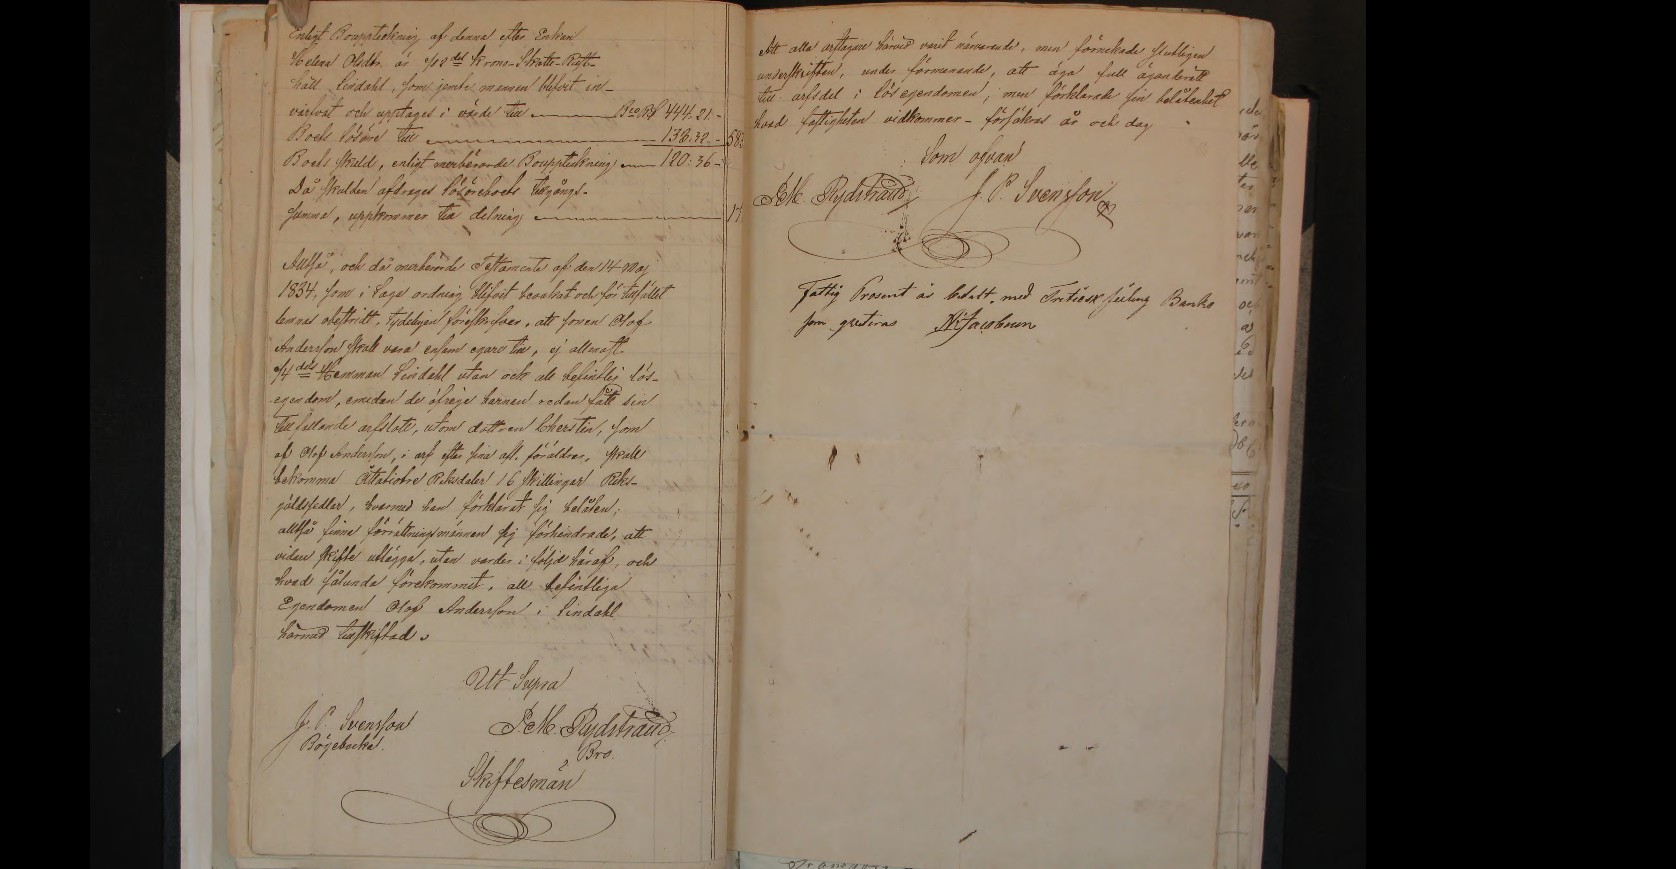 Enligt Bouppteckning af denna efter Enkan
Helena Olsdr. är 1/4 del Krono-Skatte-Rytt-
håll Lindahl, som jemte mannen blifvit in-
värfvat och upptages i värde till Bco Rd 444.21.-
Boets lösöre till 138.32.-
Boets skuld, enligt merberörde Bouppteckning 120:36-
Då skulden afdrages lösöreboets tillgångs-
summa, uppkommer till delning 17
Alltså, och då merberörde Testamente af den 14 Maj
1834, som i laga ordning blifvit bevakat och för tillfället
lemnas obestridt, tydeligen föreskrifver, att sonen Olof
Andersson skall vara ensam egare till, ej allenast
1/4 dels Hemman Lindahl utan ock all befintlig lös-
egendom, emedan de öfrige barnen redan fått sin
tillfallande arfslott, utom dottren Cherstin, som
af Olof Andersson, i arf efter sina afl. föräldrar, skall
bekomma Riksdaler 16 Skillingar Riks-
gäldssedlar, hvarmed han förklarat sig belåten;
alltså finne förrättningsmännen sig förhindrade, att
vidare skifte utlägga, utan varder i följd häraf, och
hvad sålunda förekommit, all befintliga
Egendomen Olof Andersson i Lindahl
härmed tillskiftad.
Ut Supra
J. P. Svensson P.M. Rydstrand
Bögebacka. Bro.
Skiftesmän
Att alla arftagare härvid varit närvarande, men förnekade slutligen
underskriften, under förmenande, att äga full äganderätt
till arfsdel i lösegendomen, men förklarade sin belåtenhet
hvad fastigheten vidkommer - försäkras år och dag
Som ofvan
P.M. Rydstrand J. P. Svensson
Fattig Prosent är betalt med Tretiosex skilling Banko
som qvitteras Jacobson